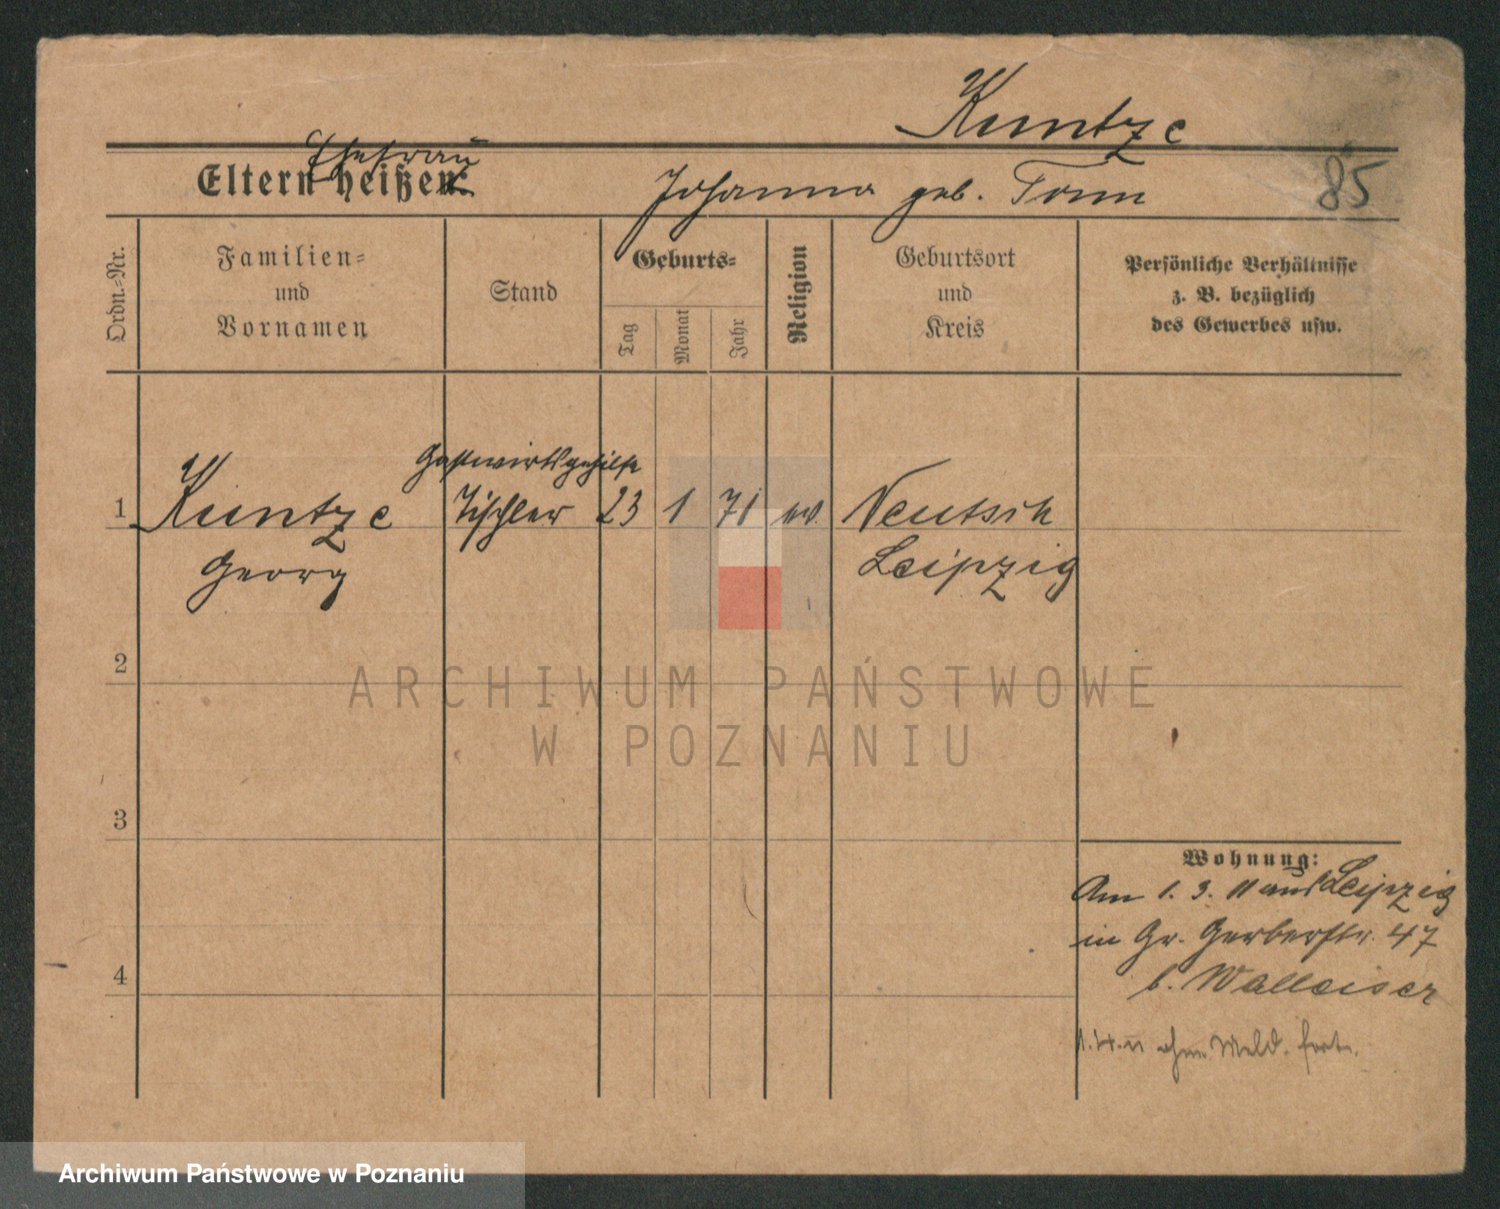 Kuntze
Ehefrau
Eltern heißen:
Johanna geb. Tonn
85
Ordn.-Nr.
Familien-
und
Vornamen
Stand
Geburts-
Tag
Monat
Jahr
Religion
Geburtsort
und
Kreis
Persönliche Verhältnisse
z. B. bezüglich
des Gewerbes usw.
Gastwirtsgehilfe
1 Kuntze Tischler 23 1 71 ev. Neutsch
Georg Leipzig
2
ARCHIWUM PAŃSTWOWE
W POZNANIU
3
Wohnung:
Am 1. 3. 11 aus Leipzig
in Gr. Gerberstr. 47
b. Walleiser
4
ohne Meld. fort.
Archiwum Państwowe w Poznaniu